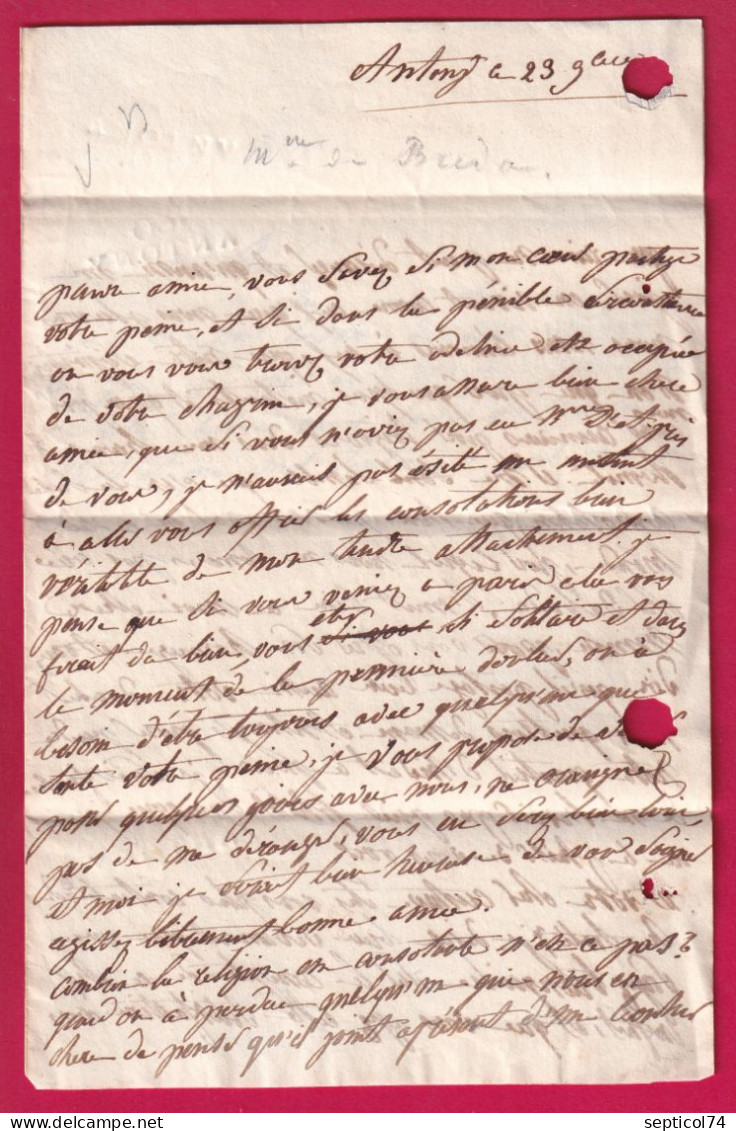 Antony ce 23 9bre
Mme de Breda
pauvre amie, vous savez si mon coeur partage
votre peine, et si dans la pénible circonstance
ou vous vous trouvez votre adeline est occupée
de votre chagrin, je vous assure bien chere
amie, que si vous n'aviez pas eu Mme D'A près
de vous, je n'aurais pas ésité un instant
à aller vous offrir les consolations bien
véritable de mon tendre attachement. je
pense que si vous veniez a paris cela vous
ferait du bien, vous etes si solitaire et dans
le moment de la premiere douleur, on à
besoin d'être toujours avec quelqu'un qui
sente votre peine, je vous propose de
passer quelques jours avec nous, ne craignez
pas de me déranger, vous en serez bien loin
et moi je serais bien heureuse de vous soigner
agissez librement bonne amie.
combien la religion est consolante n'est ce pas?
quand on à perdue quelqu'un qui nous est
chere de penser qu'il jouit a présent d'un bonheur
septicol74